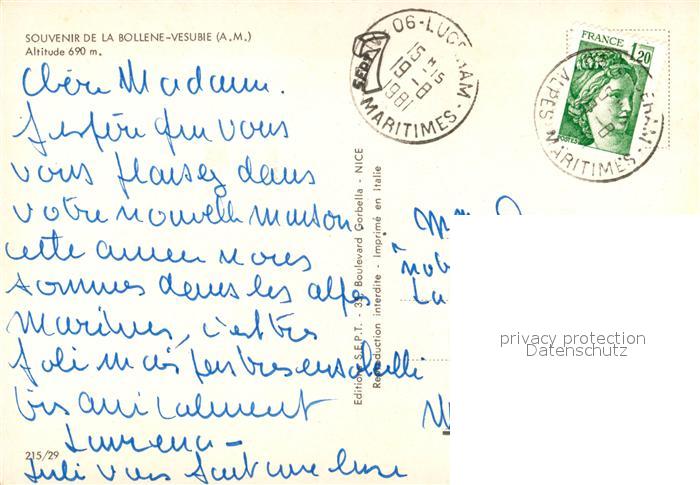 SOUVENIR DE LA BOLLENE-VESUBIE (A.M.)
Altitude 690 m.
Chère Madame.
J'espère que vous
vous plaisez dans
votre nouvelle maison
cette année nous
sommes dans les alpes
Marines, c'est très
joli mais pas très ensoleillé
très amicalement
Laurence
vous
215/29
Editions S.E.P.T. - 39, Boulevard Gorbella - NICE
Reproduction interdite - Imprimé en Italie
06-LUCERAM
15 H 15
19-8
1981
MARITIMES
SEPT
FRANCE
1,20
POSTES
ALPES MARITIMES
La
privacy protection
Datenschutz